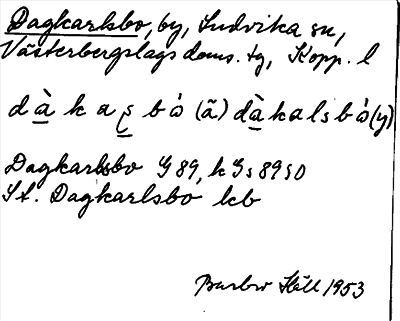 Dagkarlsbo, by, Ludvika sn,
Västerbergslags doms. tg, Kopp. l
dàkaʂbò (ã) dàkalsbò (y)
Dagkarlsbo G 89, k Gs 8950
St. Dagkarlsbo kb
Barbro Häll 1953